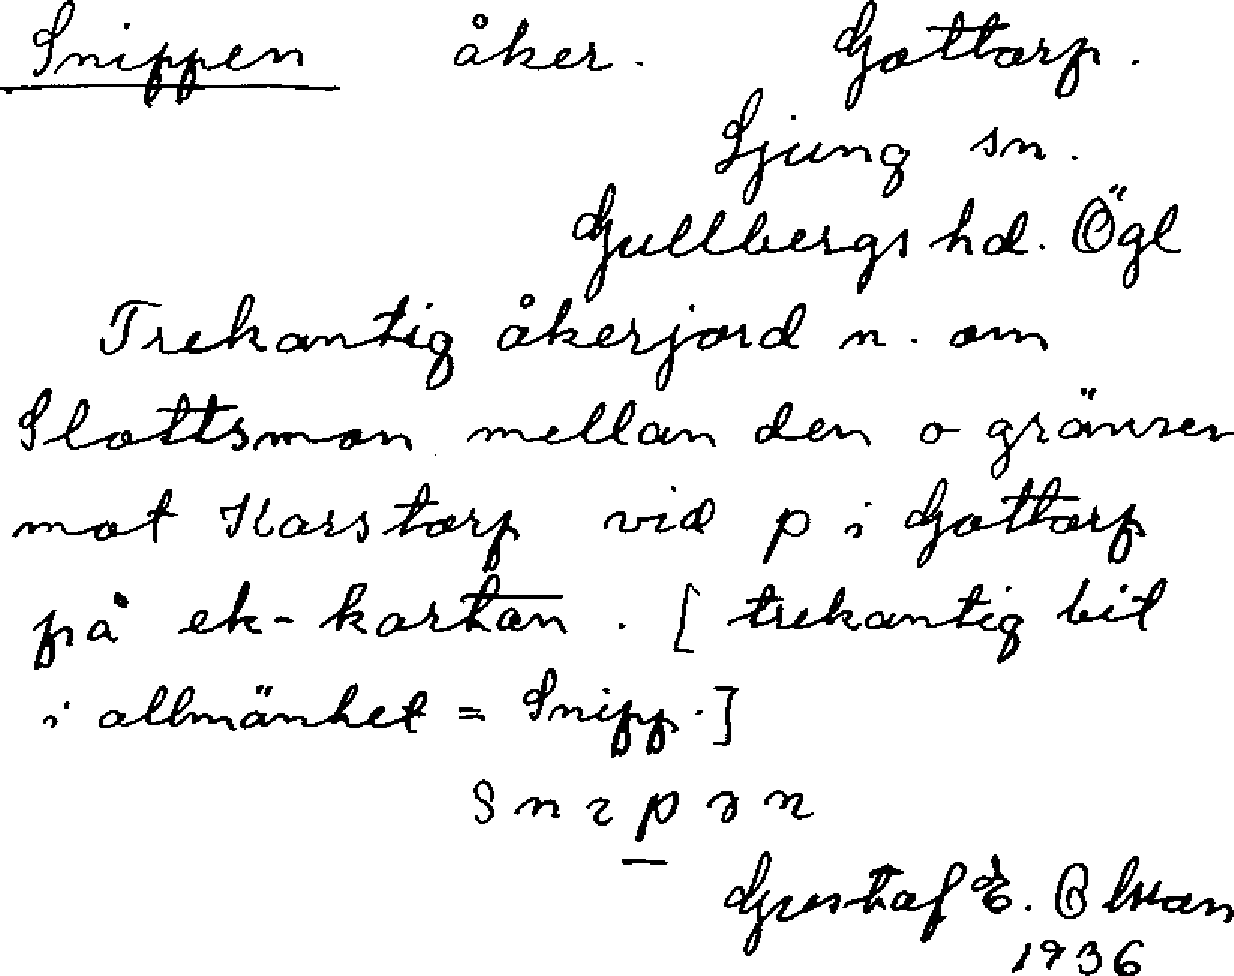 Snippen åker. Gottorp.
Ljung sn.
Gullbergs hd. Ögl
Trekantig åkerjord n. om
Slottsmon mellan den o gränsen
mot Karstorp vid p i Gottorp
på ek-kartan. [ trekantig bit
i allmänhet = Snipp.]
Gustaf E. Olsson
1936